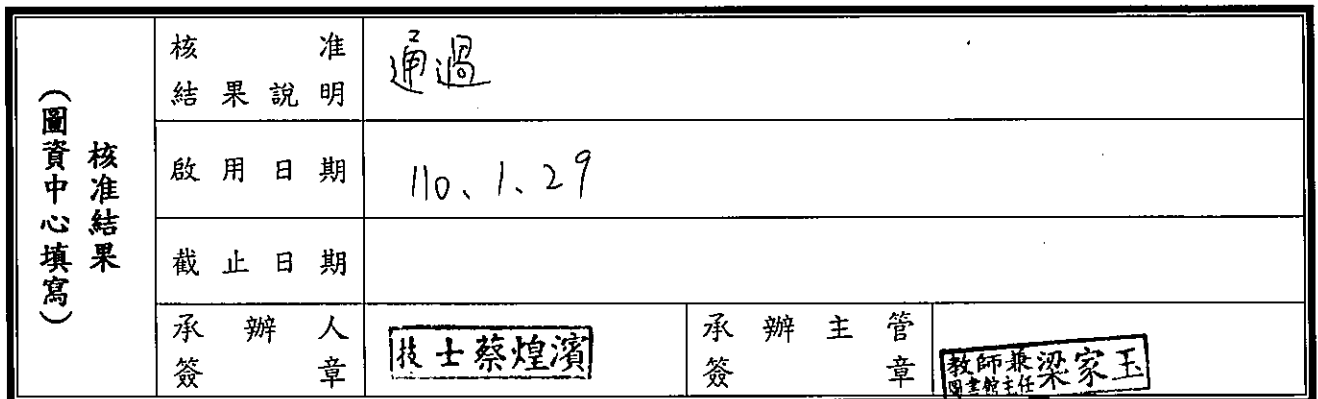 核准結果
（圖資中心填寫）
核准
結果說明
通過
啟用日期
110、1、29
截止日期
承辦人
簽章
技士蔡煌濱
承辦主管
簽章
教師兼
圖書館主任
梁家玉